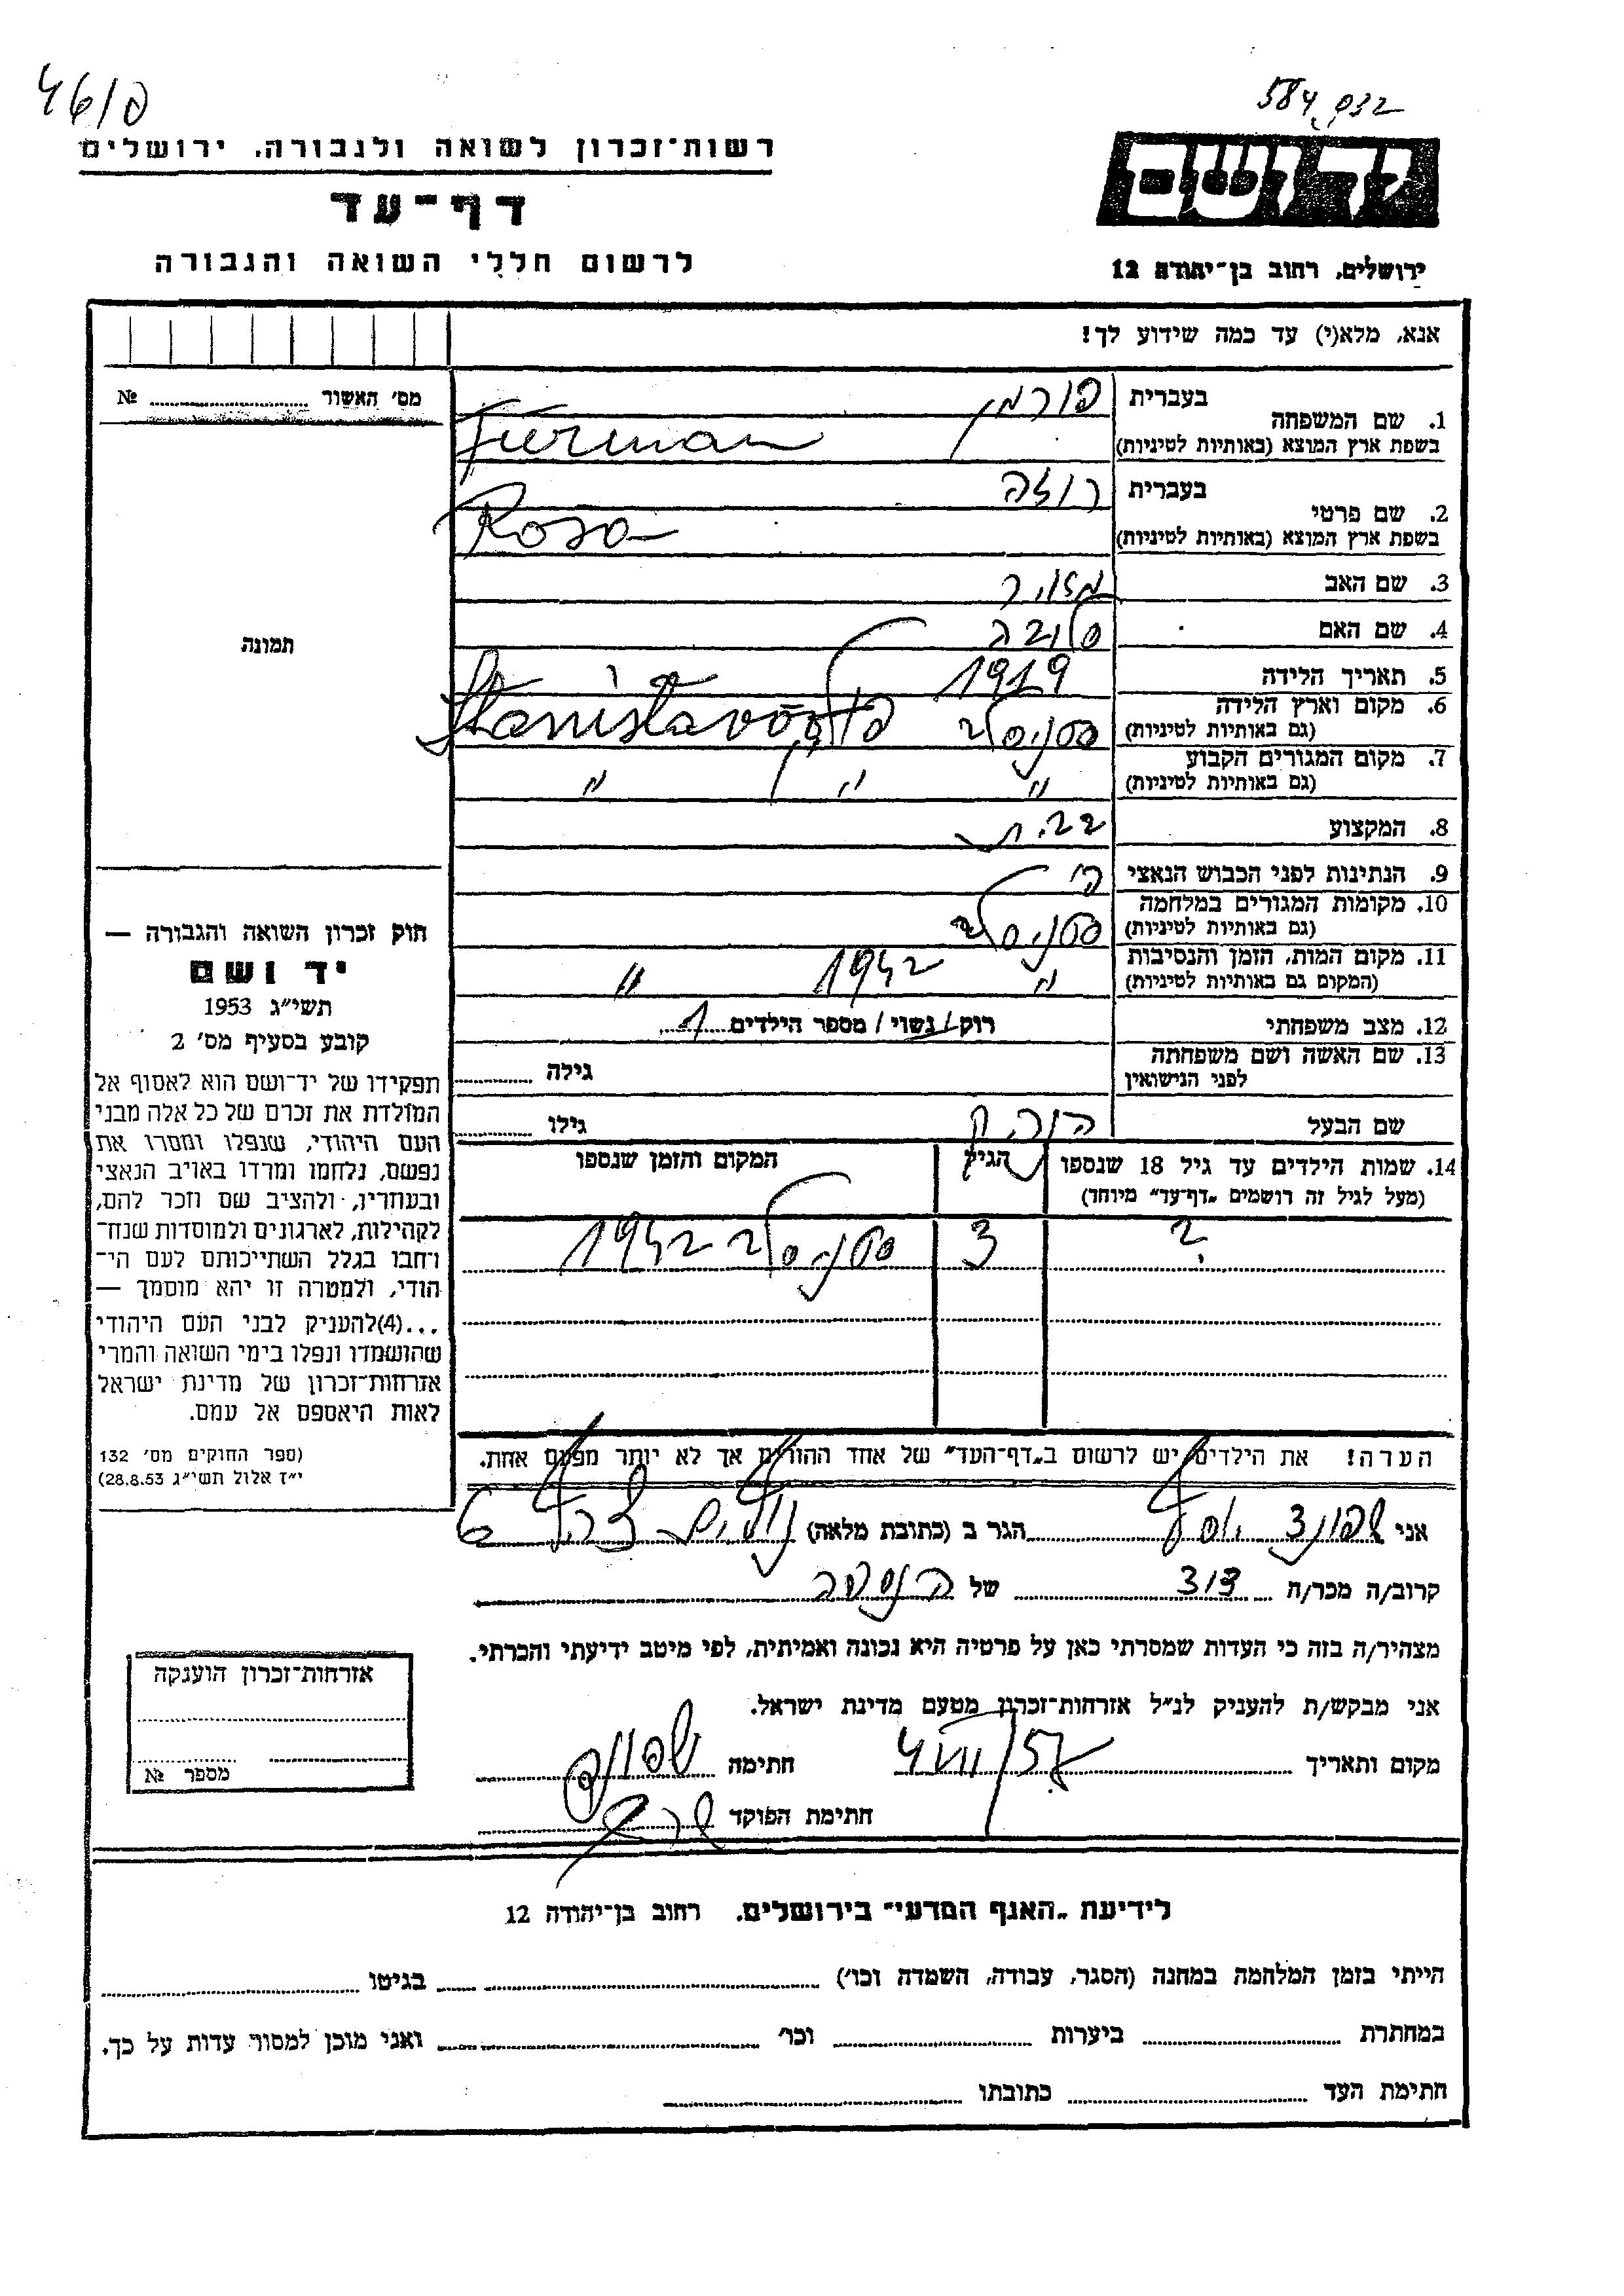 46/פ
584,032
רשות־זכרון לשואה ולגבורה. ירושלים
דף־עד
לרשום חללי השואה והגבורה
יד ושם
ירושלים, רחוב בן־יהודה 12
אנא, מלא(י) עד כמה שידוע לך!
מס׳ האשור № 
1. שם המשפחה בעברית פורמן
בשפת ארץ המוצא (באותיות לטיניות) Furman
2. שם פרטי בעברית רוזה
בשפת ארץ המוצא (באותיות לטיניות) Rosa
3. שם האב מאיר
4. שם האם טובה
5. תאריך הלידה 1919
6. מקום וארץ הלידה סטניסלב פולין
(גם באותיות לטיניות)
7. מקום המגורים הקבוע
(גם באותיות לטיניות) " " "
8. המקצוע עק. בית
9. הנתינות לפני הכבוש הנאצי פול
10. מקומות המגורים במלחמה
(גם באותיות לטיניות) סטניסלב
11. מקום המות, הזמן והנסיבות
(המקום גם באותיות לטיניות) " 1942 "
12. מצב משפחתי רוק/נשוי/מספר הילדים 1
13. שם האשה ושם משפחתה
לפני הנישואין גילה
שם הבעל גילו
14. שמות הילדים עד גיל 18 שנספו
(מעל לגיל זה רושמים „דף־עד״ מיוחד)
הגיל
המקום והזמן שנספו
? 3 סטניסלב 1942
תמונה
חוק זכרון השואה והגבורה —
יד ושם
תשי״ג 1953
קובע בסעיף מס׳ 2
תפקידו של יד־ושם הוא לאסוף אל
המולדת את זכרם של כל אלה מבני
העם היהודי, שנפלו ומסרו את
נפשם, נלחמו ומרדו באויב הנאצי
ובעוזריו, ולהציב שם וזכר להם,
לקהילות, לארגונים ולמוסדות שנח־
רחבו בגלל השתייכותם לעם הי־
הודי, ולמטרה זו יהא מוסמך —
...(4)להעניק לבני העם היהודי
שהושמדו ונפלו בימי השואה והמרי
אזרחות־זכרון של מדינת ישראל
לאות היאספם אל עמם.
(ספר החוקים מס׳ 132
י״ז אלול תשי״ג 28.8.53)
הערה! את הילדים יש לרשום ב„דף־העד״ של אחד ההורים אך לא יותר מפעם אחת.
אני הגר ב (כתובת מלאה)
קרוב/ה מכר/ה דוד של הנספה
מצהיר/ה בזה כי העדות שמסרתי כאן על פרטיה היא נכונה ואמיתית, לפי מיטב ידיעתי והכרתי.
אני מבקש/ת להעניק לנ״ל אזרחות־זכרון מטעם מדינת ישראל.
מקום ותאריך חתימה
חתימת הפוקד
אזרחות־זכרון הוענקה
מספר №
לידיעת „האגף המדעי״ בירושלים. רחוב בן־יהודה 12
הייתי בזמן המלחמה במחנה (הסגר, עבודה, השמדה וכו׳) בגיטו
במחתרת ביערות וכו׳ ואני מוכן למסור עדות על כך.
חתימת העד כתובתו